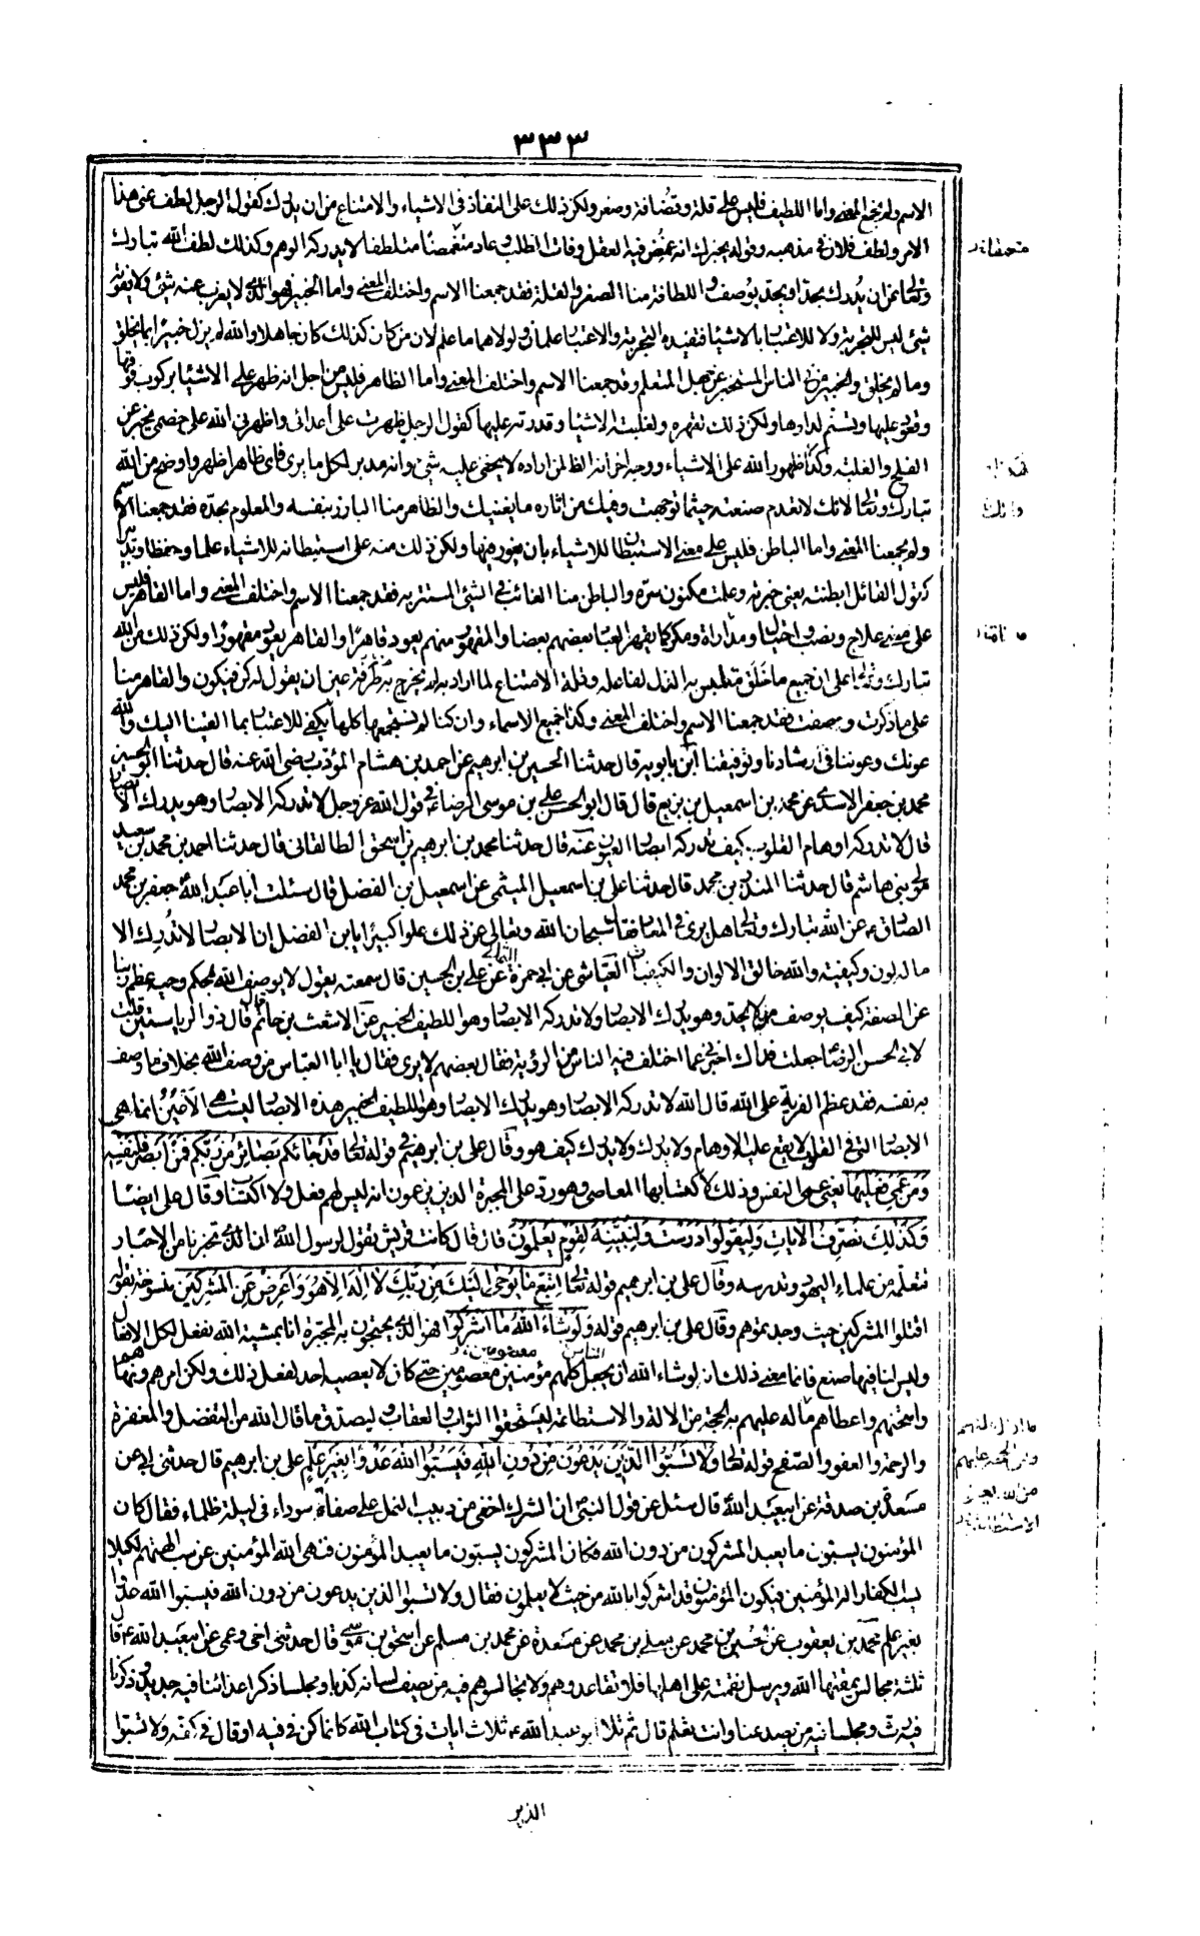 ٣٣٣
الاسم ولم يجمع المعنى واما اللطيف فليس على قلة وقضافة وصغر ولكن ذلك على النفاذ فى الاشياء والامتناع من ان يدرك كقول الرجل لطف عنى هذا
الامر ولطف فلان فى مذهبه وقوله يخبرك انه غمض فيه العقل وفات الطلب وعاد متعمقا متلطفا لا يدركه الوهم وكذلك لطف الله تبارك
وتعالى من ان يدرك بحد او يحد بوصف واللطافة منا الصغر والقلة فقد جمعنا الاسم واختلف المعنى واما الخبير فهو الذى لا يعزب عنه شئ ولا يفوته
شئ ليس للتجربة ولا للاعتبار بالاشياء فتفيده التجربة والاعتبار علما ولولاهما ما علم لان من كان كذلك كان جاهلا والله لم يزل خبيرا بما يخلق
وما لم يخلق والخبير من الناس المستخبر عن جهل المتعلم وقد جمعنا الاسم واختلف المعنى واما الظاهر فليس من اجل انه ظهر على الاشياء بركوب فوقها
وقعود عليها وتسنم لذراها ولكن ذلك لقهره ولغلبته الاشياء وقدرته عليها كقول الرجل ظهرت على أعدائى واظهرنى الله على خصمى يخبر عن
الفلج والغلبة وكذا ظهور الله على الاشياء ووجه اخر انه الظاهر لمن اراده لا يخفى عليه شئ وانه مدبر لكل ما يرى فاى ظاهر اظهر واوضح من الله
تبارك وتعالى لانك لا تعدم صنعته حيثما توجهت وفيك من اثاره ما يغنيك والظاهر منا البارز بنفسه والمعلوم بحده فقد جمعنا الاسم
ولم يجمعنا المعنى واما الباطن فليس على معنى الاستبطان للاشياء بان يغور فيها ولكن ذلك منه على استبطانه للاشياء علما وحفظا وتدبيرا
كقول القائل ابطنته يعنى خبرته وعلمت مكتوم سره والباطن منا الغائب فى الشئ المستتر به فقد جمعنا الاسم واختلف المعنى واما القاهر فليس
على معنى علاج ونصب واحتيال ومداراة ومكر كما يقهر العباد بعضهم بعضا والمقهور منهم يعود قاهرا والقاهر يعود مقهورا ولكن ذلك من الله
تبارك وتعالى على ان جميع ما خلق متلبس به الذل لفاعله وقلة الامتناع لما اراد به لم يخرج منه طرفة عين ان يقول له كن فيكون والقاهر منا
على ما ذكرت ووصفت فقد جمعنا الاسم واختلف المعنى وكذا جميع الاسماء وان كنا لم نستجمعها كلها يكتفى للاعتبار بما القينا اليك والله
عونك وعوننا فى ارشادنا وتوفيقنا ابن بابويه قال حدثنا الحسين بن ابرهيم بن احمد بن هشام المؤدب رضى الله عنه قال حدثنا ابو الحسين
محمد بن جعفر الاسدى عن محمد بن اسمعيل بن بزيع قال قال ابو الحسن على بن موسى الرضا ع فى قول الله عز وجل لا تدركه الابصار وهو يدرك الابصار
قال لا تدركه اوهام القلوب فكيف تدركه ابصار العيون عنه قال حدثنا محمد بن ابرهيم بن اسحق الطالقانى قال حدثنا احمد بن محمد بن سعيد
مولى بنى هاشم قال حدثنا المنذر بن محمد قال حدثنا على بن اسمعيل الميثمى عن اسمعيل بن الفضل قال سئلت أبا عبد الله جعفر بن محمد
الصادق ع عن الله تبارك وتعالى هل يرى فى المعاد فقال سبحان الله وتعالى عن ذلك علوا كبيرا يا ابن الفضل ان الابصار لا تدرك الا
ما له لون وكيفية والله خالق الالوان والكيفيات العياشى عن ابى حمزة الثمالى عن على بن الحسين قال سمعته يقول لا يوصف الله بمحكم وحيه عظم ربنا
عن الصفة كيف يوصف من لا يحد وهو يدرك الابصار ولا تدركه الابصار وهو اللطيف الخبير عن الاشعث بن حاتم قال قال ذو الرياستين قلت
لابى الحسن الرضا ع جعلت فداك اخبرنى عما اختلف فيه الناس من الرؤية فقال بعضهم لا يرى فقال يا ابا العباس من وصف الله بخلاف ما وصف
به نفسه فقد عظم الفرية على الله قال الله لا تدركه الابصار وهو يدرك الابصار وهو اللطيف الخبير هذه الابصار ليست هى الاعين انما هى
الابصار التى فى القلوب لا يقع عليه الاوهام ولا يدرك كيف هو وقال على بن ابرهيم فى قوله تعالى قد جائكم بصائر من ربكم فمن أبصر فلنفسه
ومن عمى فعليها يعنى على النفس وذلك لاكتسابها المعاصى وهو رد على المجبرة الذين يزعمون انه ليس لهم فعل ولا اكتساب وقال على ايضا
وكذلك نصرف الايات وليقولوا درست ولنبينه لقوم يعلمون قال قال كانت قريش تقول لرسول الله ص ان الذى تخبرنا من الاخبار
تتعلمه من علماء اليهود وتدرسه وقال على بن ابرهيم قوله تعالى اتبع ما يوحى اليك من ربك لا اله الا هو واعرض عن المشركين منسوخة بقوله
اقتلوا المشركين حيث وجدتموهم وقال على بن ابرهيم قوله ولو شاء الله ما اشركوا فهو الذى يحتجون به المجبرة انا بمشية الله نفعل لكل الافعال
وليس لنا فيها صنع فانما معنى ذلك انه لو شاء الله ان يجعل الناس كلهم مؤمنين معصومين حتى كان لا يعصيه احد لفعل ذلك ولكن امرهم ونهاهم
وامتحنهم واعطاهم ما له عليهم به الحجة من الالة والاستطاعة ليستحقوا الثواب والعقاب ليصدقوا ما قال الله من التفضل والمغفرة
والرحمة والعفو والصفح قوله تعالى ولا تسبوا الذين يدعون من دون الله فيسبوا الله عدوا بغير علم على بن ابرهيم قال حدثنى ابى عن
مسعدة بن صدقة عن ابيعبد الله قال سئل عن قول النبى ص ان الشرك اخفى من دبيب النمل على صفاة سوداء فى ليلة ظلماء فقال كان
المؤمنون يسبون ما يعبد المشركون من دون الله فكان المشركون يسبون ما يعبد المؤمنون فنهى الله المؤمنين عن سب الهتهم لكيلا
يسب الكفار اله المؤمنين فيكون المؤمنون قد اشركوا بالله من حيث لا يعلمون فقال ولا تسبوا الذين يدعون من دون الله فيسبوا الله عدوا
بغير علم محمد بن يعقوب عن حسين بن محمد عن معلى بن محمد عن مسعدة عن محمد بن مسلم عن اسحق بن موسى قال حدثنى اخى وعمى عن ابيعبد الله ع قال
ثلثة مجالس يمقتها الله ويرسل نقمته على اهلها فلا تقاعدوهم ولا تجالسوهم مجلسا فيه من يصف لسانه كذبا ومجلسا ذكر اعدائنا فيه جديد وذكرنا
فيه رث ومجلسا فيه من يصد عنا وانت تعلم قال ثم تلا ابو عبد الله ع ثلاث ايات فى كتاب الله كانما كن فى فيه او قال فى كفه ولا تسبوا
الذين